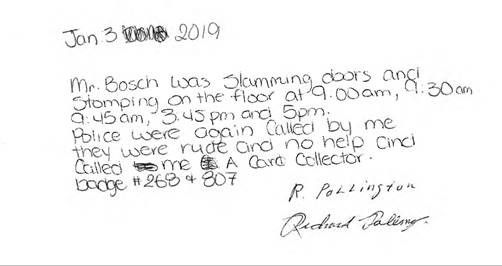 Jan 3 2019
Mr. Bosch was Slamming doors and
Stomping on the floor at 9.00am, 9:30am
9:45am, 3.45pm and 5pm.
Police were again Called by me
they were rude and no help and
Called me A Card Collector.
badge #268 + 807
R. Pollington
Richard